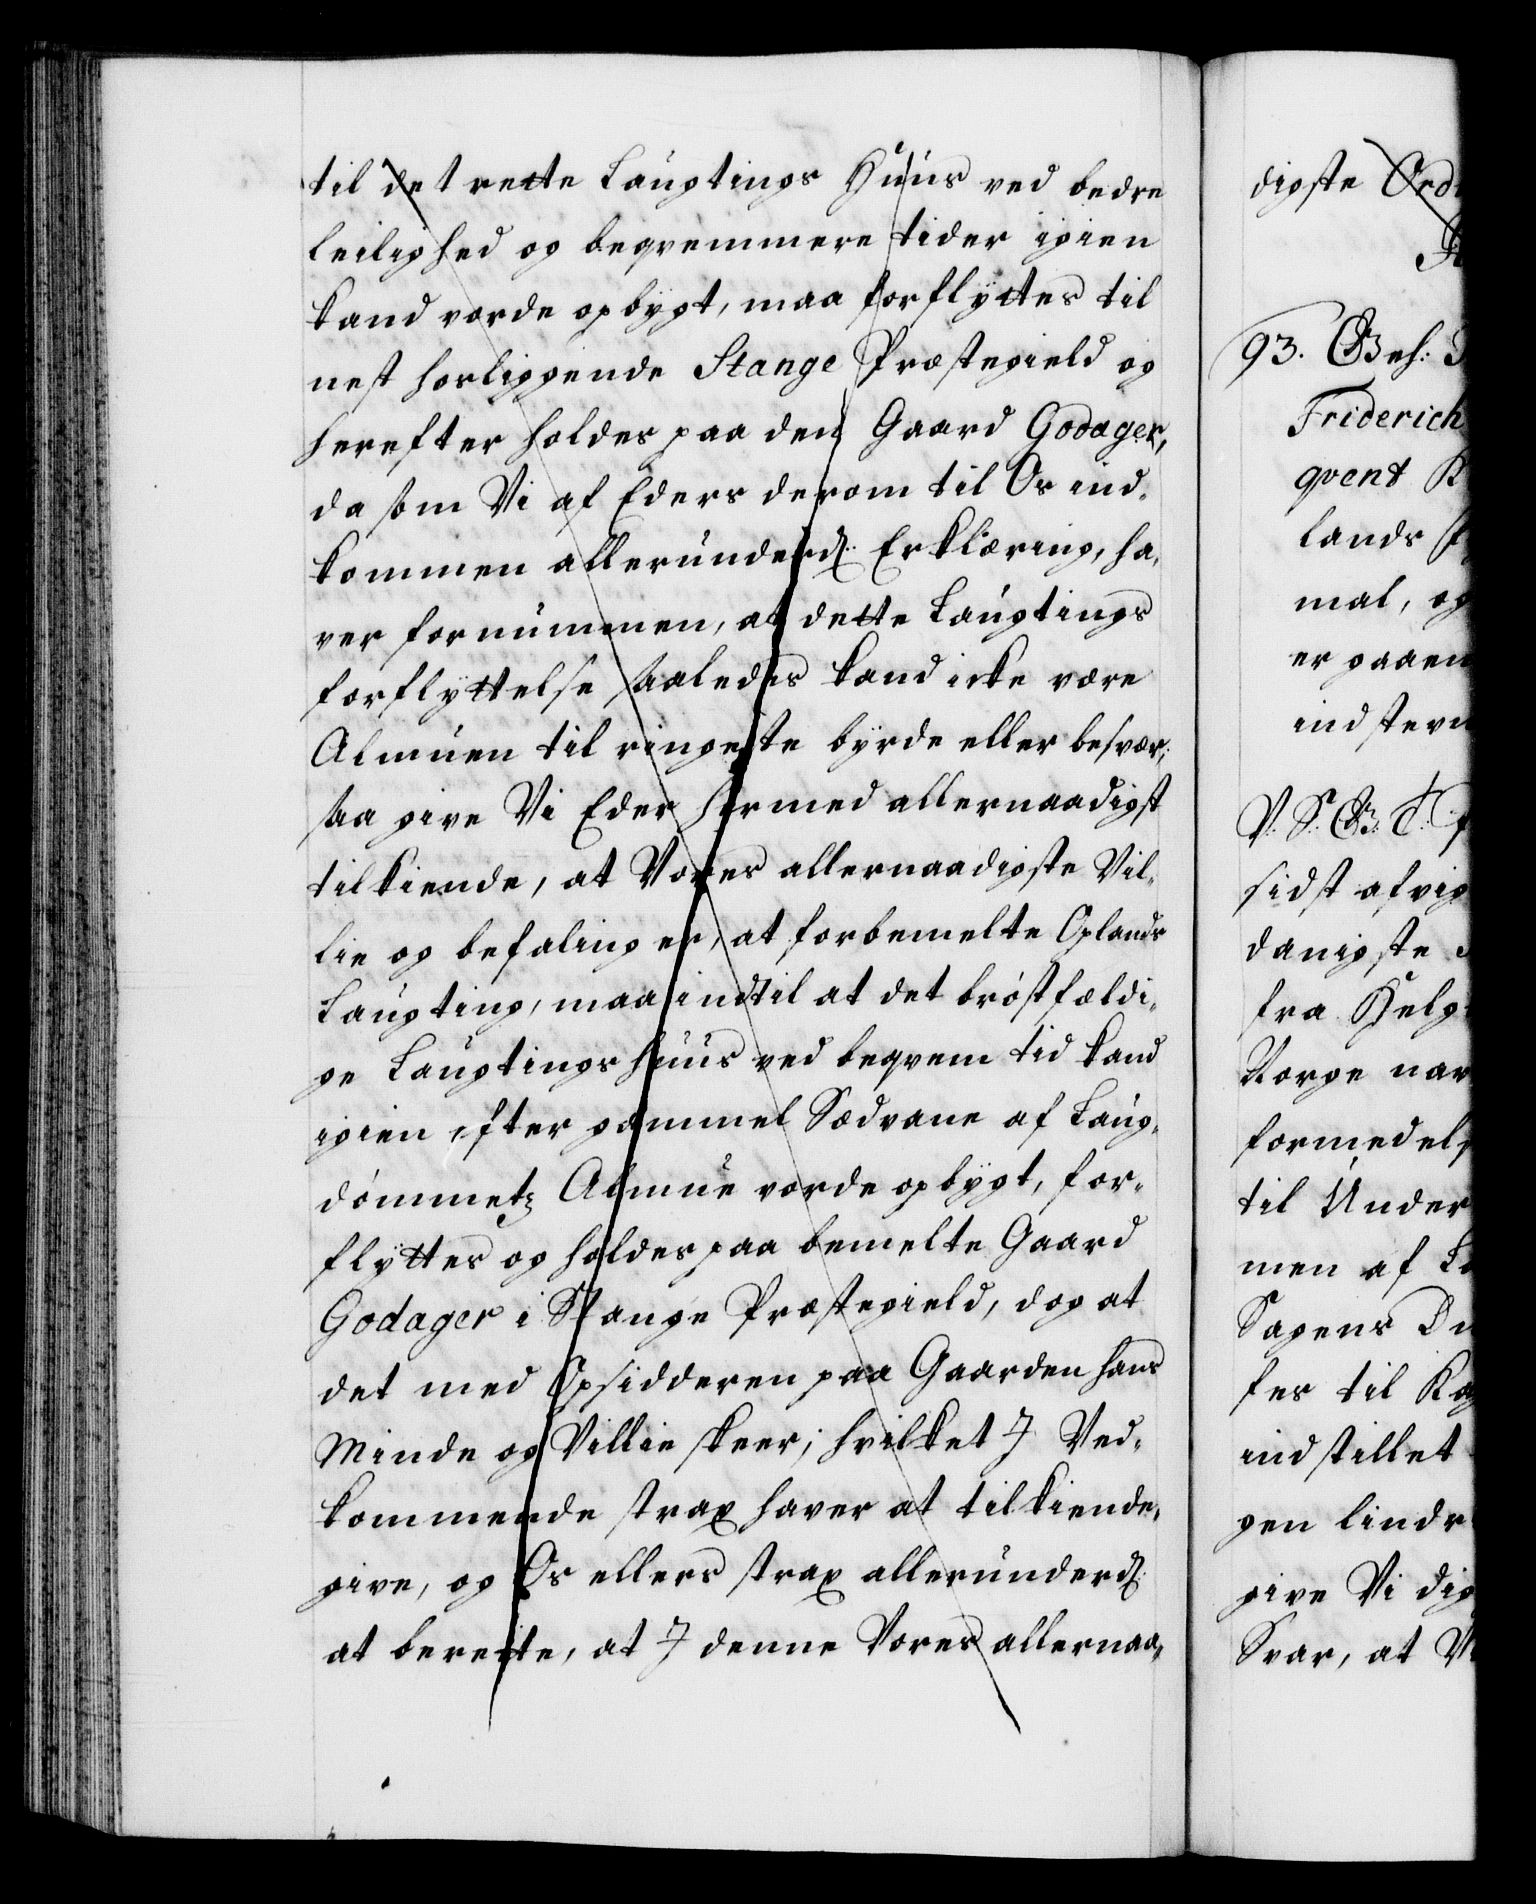 til det rette Laugtings Huus ved bedre
leilighed og beqvemmere tider igien
kand vorde opbygt, maa forflyttes til
nest hosliggende Stange Præstegield og
herefter holdes paa den Gaard Godager,
da som Vi af Eders derom til Os ind-
kommen allerunderd: Erklæring, ha-
ver fornummen, at dette Laugtings
forflyttelse saaledes kand icke være
Almuen til ringeste byrde eller besvær;
saa give Vi Eder hermed allernaadigst
tilkiende, at Vores allernaadigste Vil-
lie og befaling er, at forbemelte Oplands
Laugting, maa indtil at det bröstfældi-
ge Laugtings huus ved beqvem tid kand
igien efter gammel Sædvane af Laug-
dömmetz Almue vorde opbygt, for-
flyttes og holdes paa bemelte Gaard
Godager i Stange Præstegield, dog at
det med Opsidderen paa Gaarden hans
Minde og Villie skeer; hvilket I Ved-
kommende strax haver at tilkiende-
give, og Os ellers strax allerunderd:
at berette, at I denne Vores allernaa-
digste Ord
93. Gehs:
Friderich
qvent K
lands
mal, og
er gaaen
indstevn
V. S. G. T.
sidst afvig
danigste
fra Helg
Norge nar
formedels
til Under
men af La
Sagens
fes til Kag
indstillet
gen lindr
give Vi dig
Svar, at V